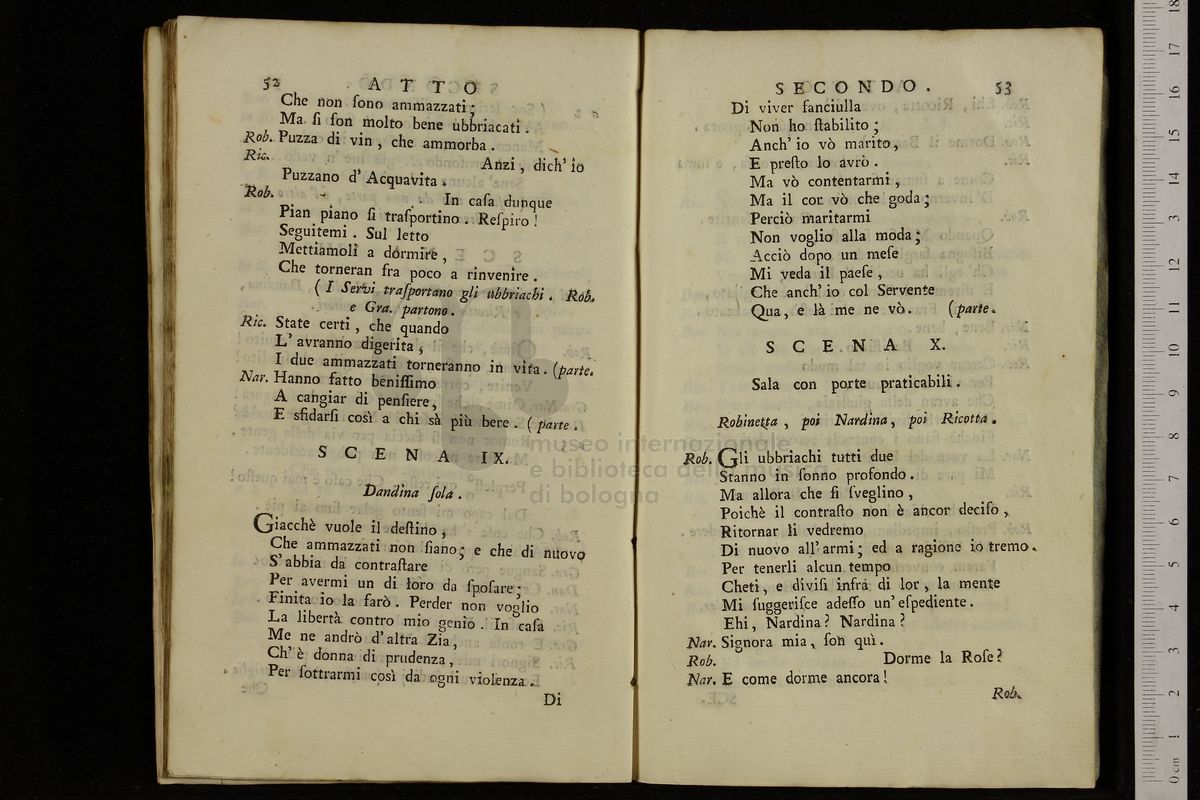 52 ATTO
Che non ſono ammazzati;
Ma ſi ſon molto bene ubbriacati.
Rob. Puzza di vin, che ammorba.
Ric. Anzi, dich' io
Puzzano d' Acquavita.
Rob. In caſa dunque
Pian piano ſi traſportino. Reſpiro!
Seguitemi. Sul letto
Mettiamoli a dormire,
Che torneran fra poco a rinvenire.
( I Servi traſportano gli ubbriachi. Rob.
e Gra. partono.
Ric. State certi, che quando
L' avranno digerita,
I due ammazzati torneranno in vita. (parte.
Nar. Hanno fatto beniſſimo
A cangiar di penſiere,
E sfidarſi così a chi sà più bere. (parte.
SCENA IX.
Dandina ſola.
Giacchè vuole il deſtino,
Che ammazzati non ſiano; e che di nuovo
S' abbia da contraſtare
Per avermi un di loro da ſpoſare;
Finita io la farò. Perder non voglio
La libertà contro mio genio. In caſa
Me ne andrò d' altra Zia,
Ch' è donna di prudenza,
Per ſottrarmi così da ogni violenza.
Di
SECONDO. 53
Di viver fanciulla
Non ho ſtabilito;
Anch' io vò marito,
E preſto lo avrò.
Ma vò contentarmi,
Ma il cor vò che goda;
Perciò maritarmi
Non voglio alla moda;
Acciò dopo un meſe
Mi veda il paeſe,
Che anch' io col Servente
Qua, e là me ne vò. (parte.
SCENA X.
Sala con porte praticabili.
Robinetta, poi Nardina, poi Ricotta.
Rob. Gli ubbriachi tutti due
Stanno in ſonno profondo.
Ma allora che ſi ſveglino,
Poichè il contraſto non è ancor deciſo,
Ritornar li vedremo
Di nuovo all' armi; ed a ragione io tremo.
Per tenerli alcun tempo
Cheti, e diviſi infra di lor, la mente
Mi ſuggeriſce adeſſo un' eſpediente.
Ehi, Nardina? Nardina?
Nar. Signora mia, ſon quì.
Rob. Dorme la Roſe?
Nar. E come dorme ancora!
Rob.
museo internazionale
e biblioteca della musica
di bologna
0 cm 1 2 3 4 5 6 7 8 9 10 11 12 13 14 15 16 17 18